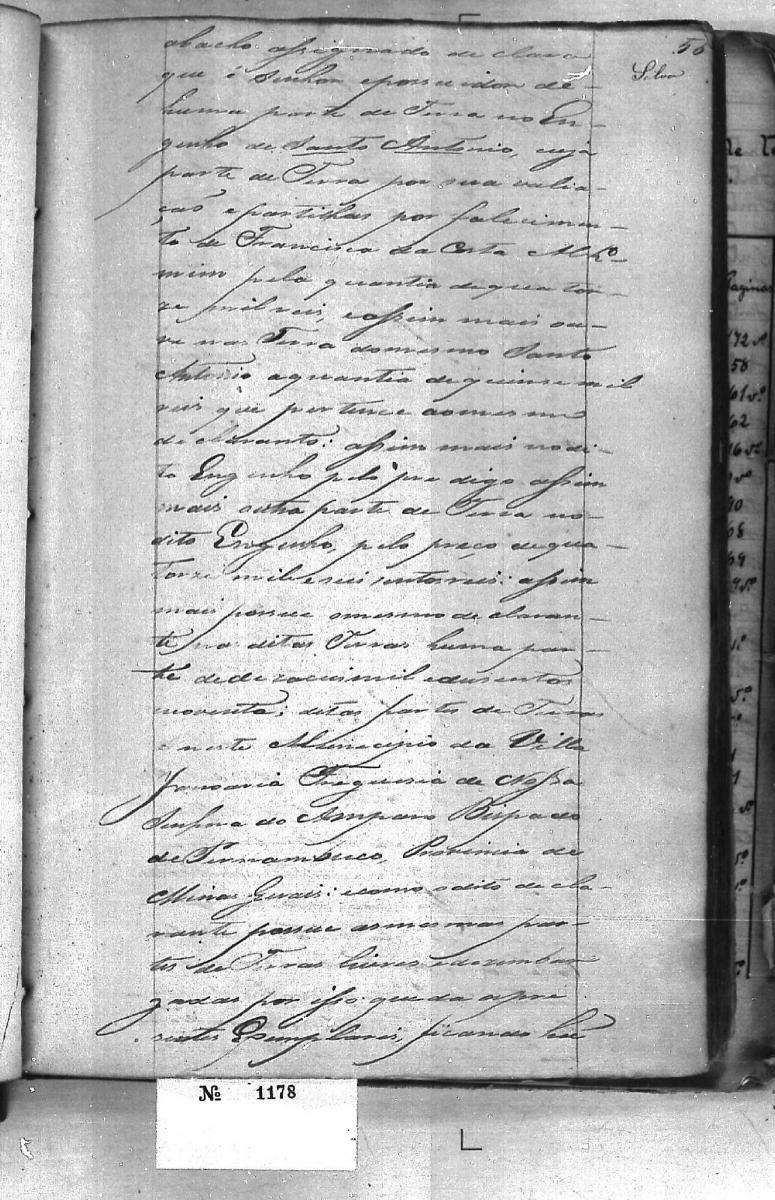 56
Silva
abacho assignado de clara
que é Senhor epossuidor de-
huma parte de Terra no En-
genho de Santo Antonio, cuja
parte de Terra por sua valia-
ção epartilhas por falecimen-
to de Francisco da Costa
pela quantia de qua tor-
ze mil reis, eassim mais ou-
ve nas Terra domesmo Santo
Antonio aquantia de quinse mil
reis que pertence aomesmo
declarante: assim mais nodi-
to Engenho pelo que digo assim
mais outra parte de Terra no-
dito Engenho, pelo preço dequa-
torze mil eseis sentos reis: assim
mais possue omesmo de claran-
te na ditas Terras huma par-
te dedezaceis mil eduzentos
noventa; ditas partes de Terras
é neste Municipio da Villa
Januaria Freguesia de Nossa
Senhora do Amparo Bispado
de Pernambuco, Provincia de
Minas Gerais: ecomo odito de cla-
rante possue asmesmas par-
tes de Terras livres edezembar
gadas por isso que da aspre
zentes Exemplares, ficando hú
№ 1178
Paginas
172 vº
58
61 vº
62
16 vº
vº
90
68
69
9 vº